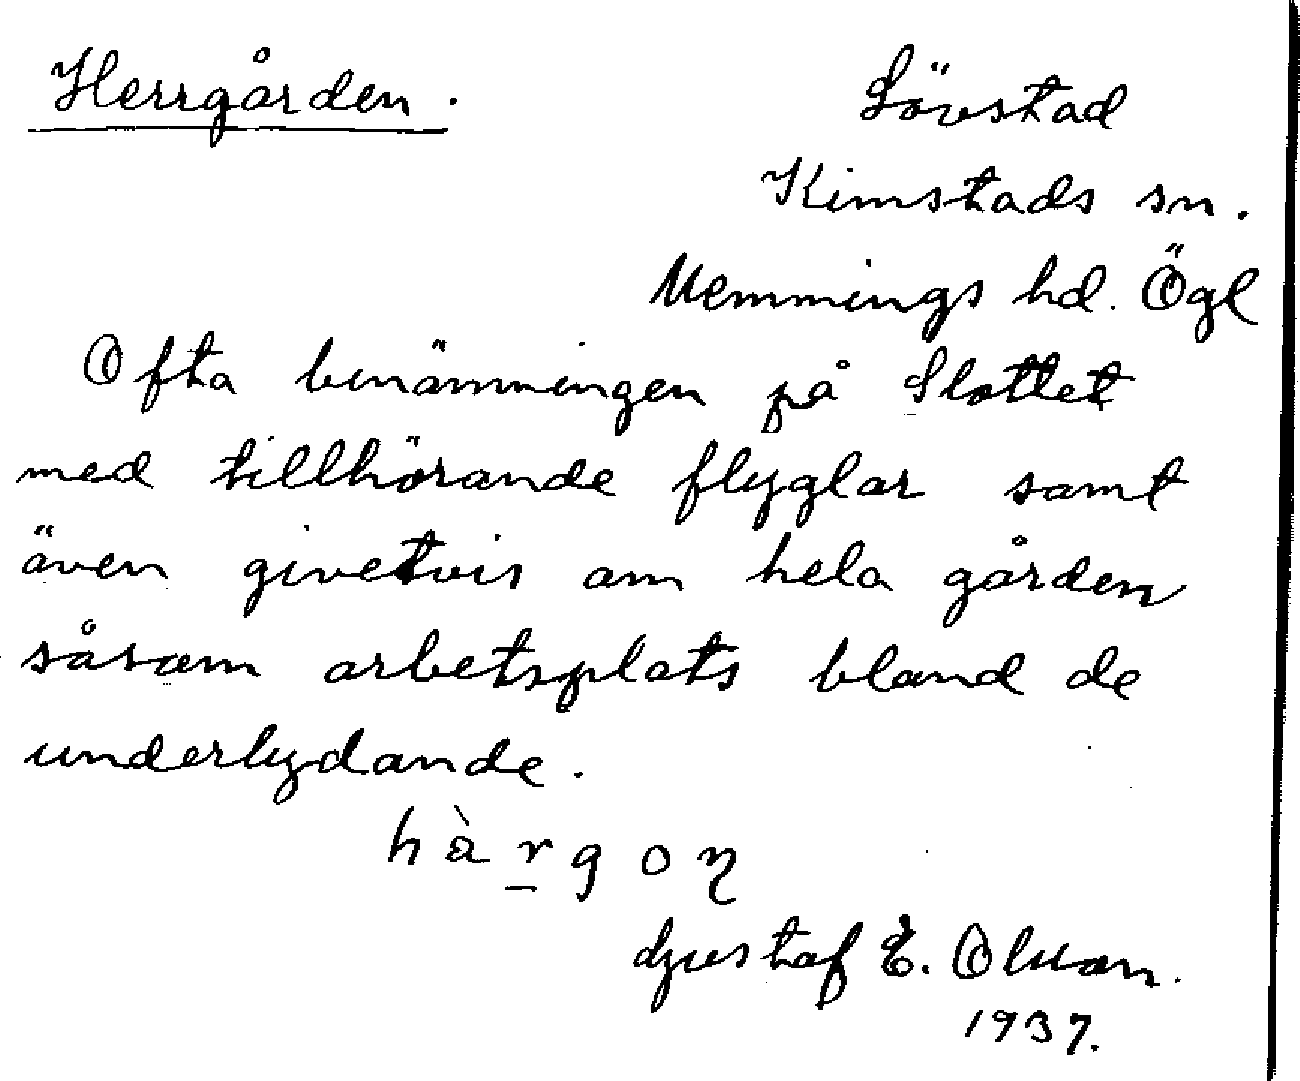 Herrgården.
Lövstad
Kimstads sn.
Memmings hd. Ögl
Ofta benämningen på Slottet
med tillhörande flyglar samt
även givetvis om hela gården
såsom arbetsplats bland de
underlydande.
hàr̲goƞ
Gustaf E. Olsson.
1937.